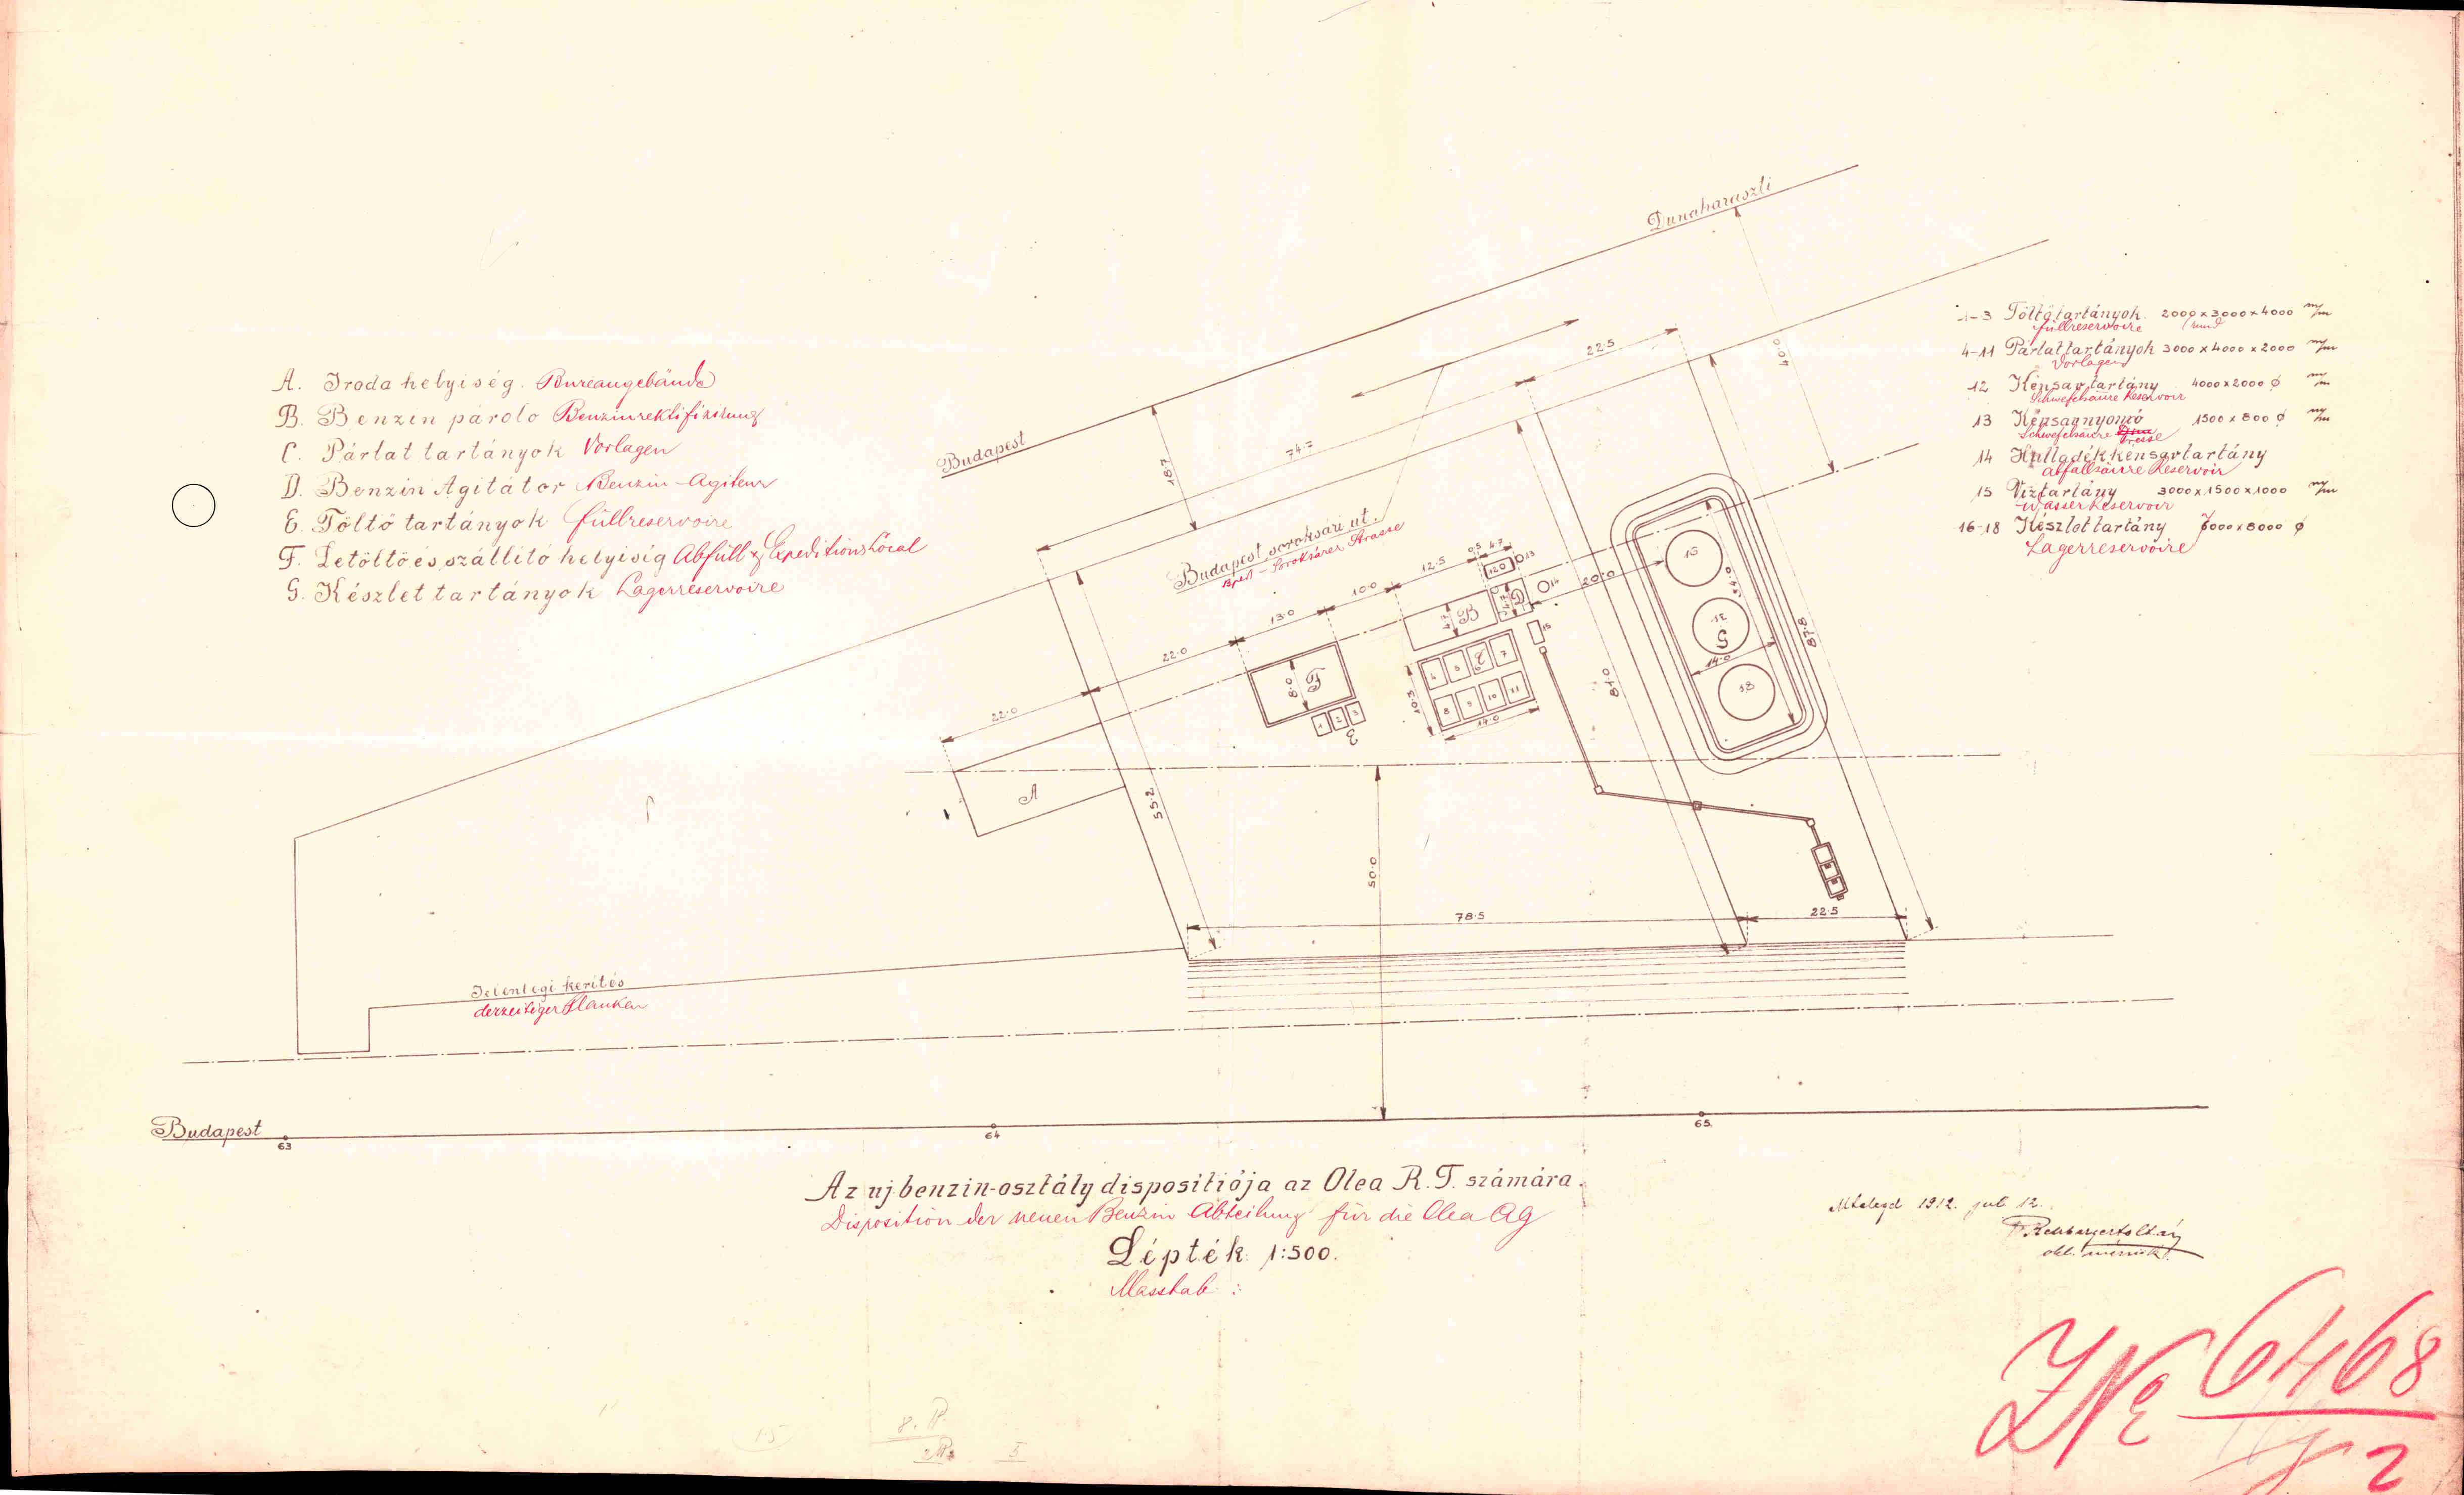 Dunaharaszti
Budapest
18.7
74.7
22.5
40.0
Budapest soroksári út.
Bpest - Soroksárer Strasse
A. Iroda helyiség. Bureaugebäude
B. Benzin pároló Benzinrektifizirung
C. Párlat tartányok Vorlagen
D. Benzin Agitátor Benzin-Agiteur
E. Töltő tartányok Füllreservoire
F. Letöltő és szállító helyiség Abfüll & Expeditions Local
G. Készlet tartányok Lagerreservoire
1-3 Töltőtartányok. 2000 x 3000 x 4000 m/m
Füllreservoire (rund
4-11 Párlattartányok 3000 x 4000 x 2000 m/m
Vorlagen
12 Kénsavtartány 4000 x 2000 ϕ m/m
Schwefelsäure Reservoir
13 Kénsavnyomó 1500 x 800 ϕ m/m
Schwefelsäure Presse
14 Hulladékkénsavtartány
Abfallsäure Reservoir
15 Víztartány 3000 x 1500 x 1000 m/m
Wasser Reservoir
16-18 Készlettartány 7000 x 8000 ϕ
Lagerreservoire
22.0
22.0
13.0
10.0
12.5
0.5
4.7
20.0
A
F
8.0
1
2
3
E
B
4.7
D
4.7
120
13
14
15
4
5
C
7
8
9
10
11
10.3
14.0
15
G
18
14.0
87.8
81.0
55.2
50.0
78.5
22.5
Jelenlegi kerítés
derzeitiger Planken
Budapest
63
64
65
Az uj benzin-osztály dispositiója az Olea R.T. számára.
Disposition der neuen Benzin Abteilung für die Olea AG
Lépték 1:500.
Masstab :
Mtelegd 1912. juli 12.
okl. mérnök
6468
2
8.
15
5